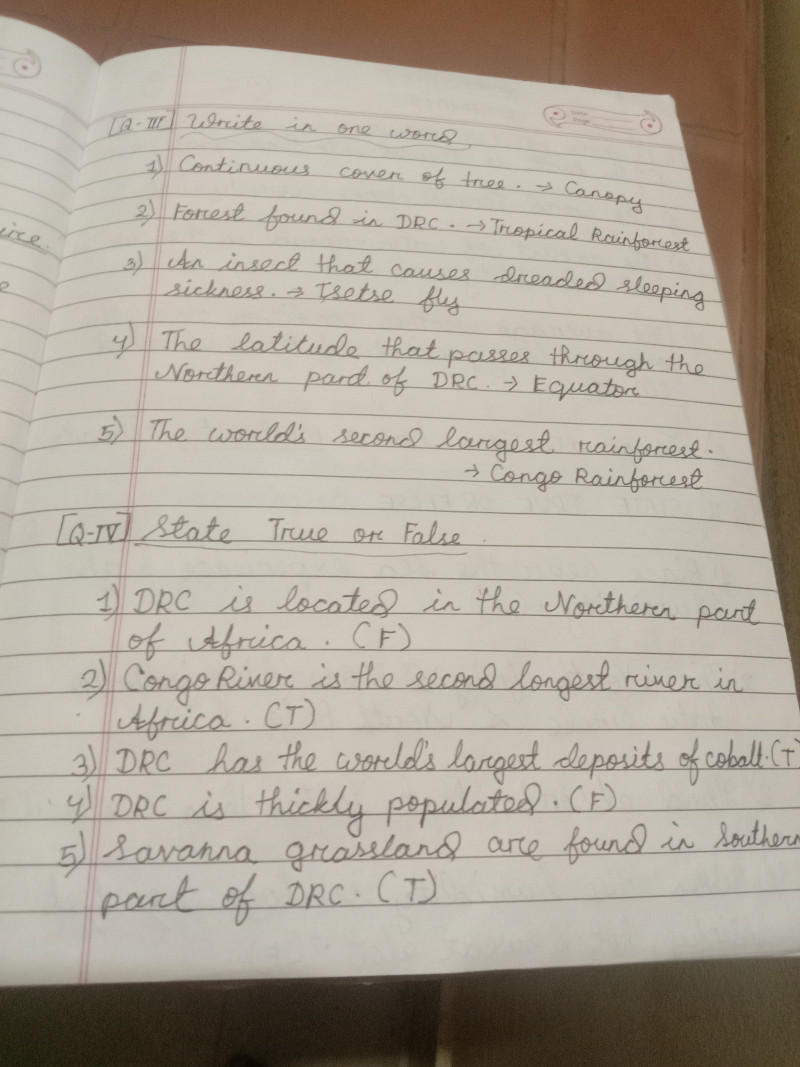 [Q-III] Write in one word,
1) Continuous cover of tree. → Canopy
2) Forest found in DRC. → Tropical Rainforest
3) An insect that causes dreaded sleeping
sickness. → Tsetse fly
4) The latitude that passes through the
Northern part of DRC. → Equator
5) The world's second largest rainforest.
→ Congo Rainforest
[Q-IV] State True or False.
1) DRC is located in the Northern part
of Africa. (F)
2) Congo River is the second longest river in
Africa. (T)
3) DRC has the world's largest deposits of coball. (T)
4) DRC is thickly populated. (F)
5) Savanna grassland are found in Southern
part of DRC. (T)